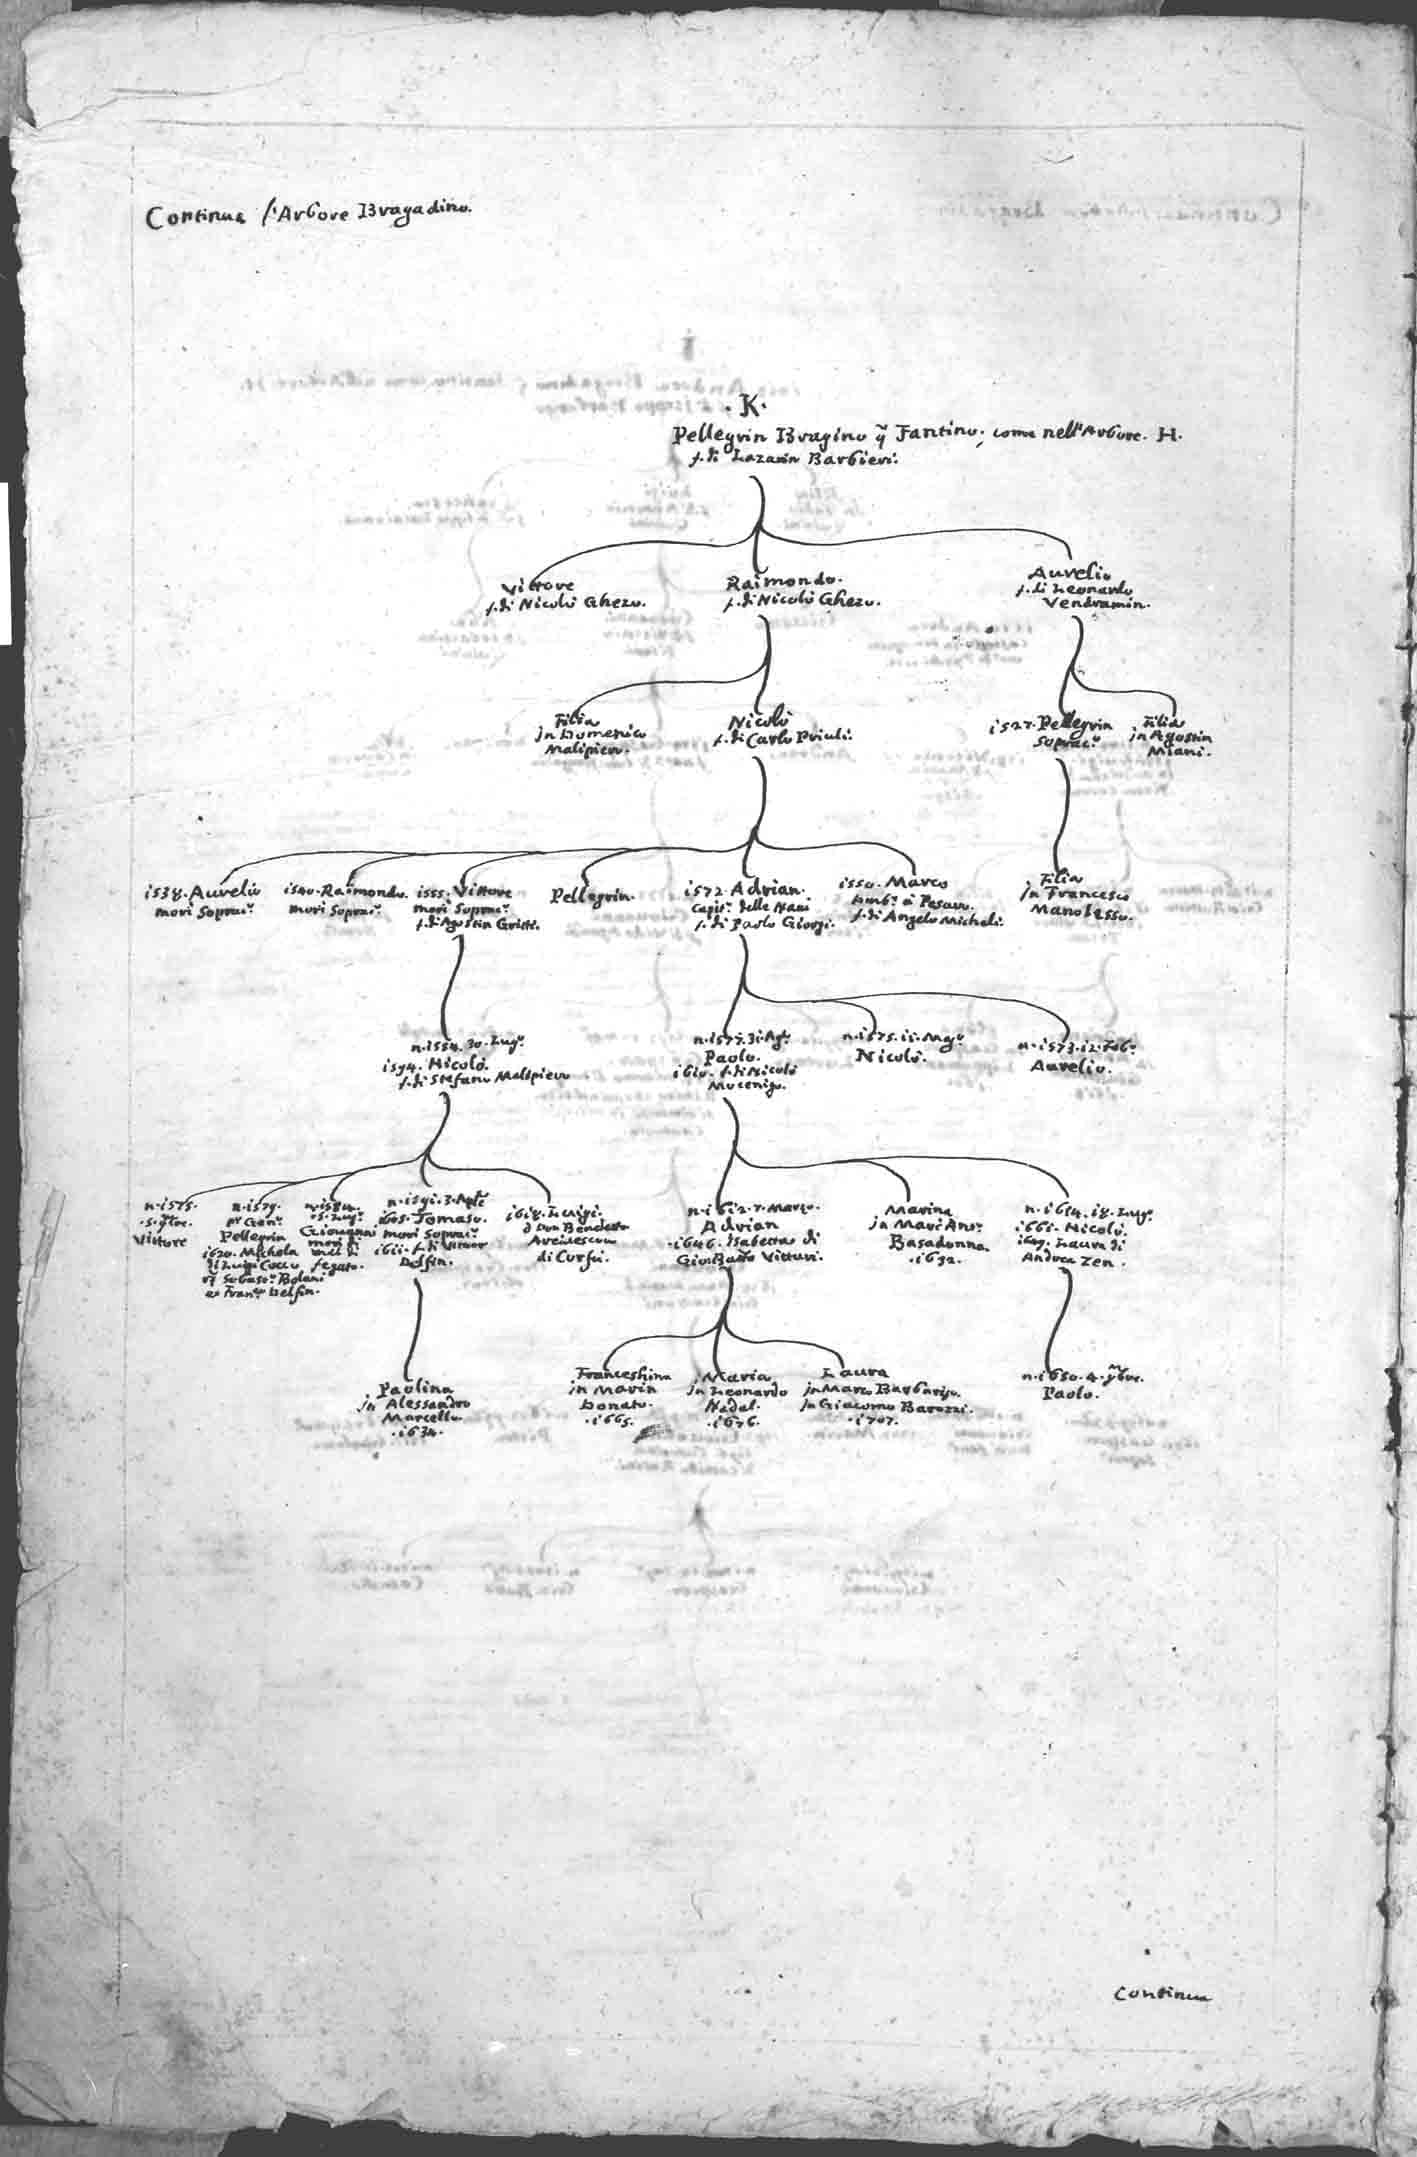 Continua l'Arbore Bragadino.
.K.
Pellegrin Bragino q̃ Fantino. come nell'Arbore. H.
f. di Lazarin Barbieri.
Vittore
f. di Nicolò Ghezo.
Raimondo.
f. di Nicolò Ghezo.
Aurelio
f. di Leonardo
Vendramin.
Filia
jn Domenico
Malipiero.
Nicolò
f. di Carlo Priuli.
i527. Pellegrin
Soprac.º
Filia
jn Agostin
Miani.
i538. Aurelio
morì Soprac.º
i540. Raimondo.
morì Soprac.º
i555. Vittore
morì Soprac.º
f. di Agostin Gritti.
Pellegrin.
i572. Adrian.
Capit.º delle Navi
f. di Paolo Giorgi.
i550. Marco
Amb.r à Pesaro.
f. di Angelo Micheli.
Filia
jn Francesco
Manolesso.
n. i554. 30. Lug.º
i594. Nicolò.
f. di Stefano Malipiero
n. i577. 3i. Ag.º
Paolo.
i6i0. f. di Nicolò
Mocenigo.
n. i575. ii. Mag.º
Nicolò.
n. i573. i2. Feb.º
Aurelio.
n. i575.
Vittore
n. i579.
Pellegrin
i620. Michela
di Luigi Cocco
Bolani
Delfin.
5. Lug.º
Giovanni
morì di
mal di
fegato.
n. i59i. 3. Aple
i605. Tomaso.
morì Soprac.º
i6ii. f. di Vittor
Delfin.
i6i8. Luigi.
ò Don Benedetto
Arcivescovo
di Corfù.
n. i6i2. 7. Marzo.
Adrian
i646. Isabetta di
Gio: Batta Vitturi.
Marina
jn Marc'Ant.º
Basadonna
.i632.
n. i6i4. i8. Lug.º
Nicolò.
i649. Laura di
Andrea Zen.
Paolina
jn Alessandro
Marcello.
.i634.
Franceschina
jn Marin
Donato.
.i665.
Maria
jn Leonardo
Nadal.
.i676.
Laura
jn Marco Barbarigo.
jn Giacomo Barozzi.
.i707.
n. i650. 4.
Paolo.
Continua